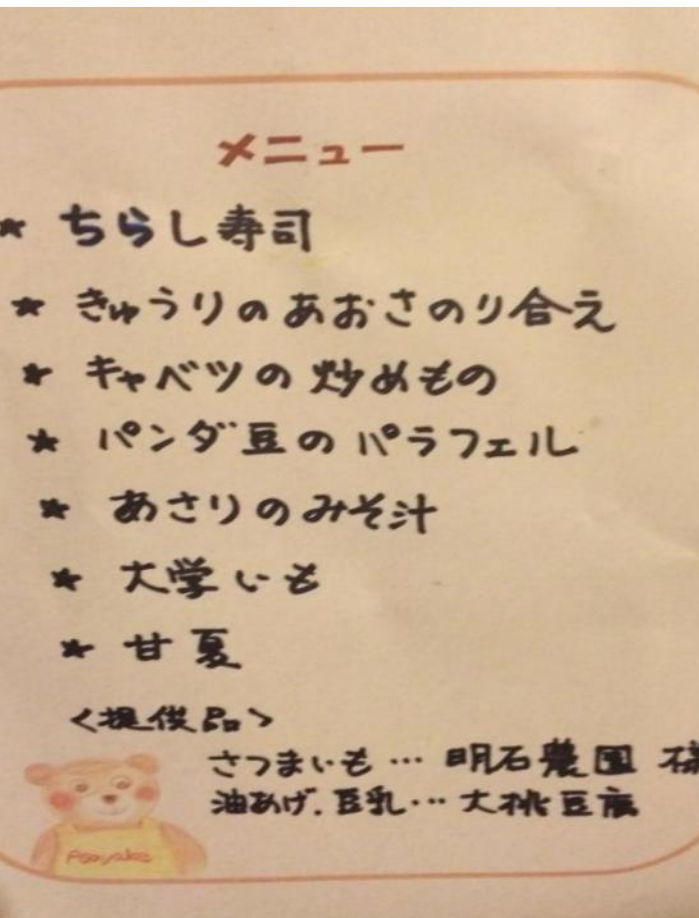 メニュー
★ ちらし寿司
★ きゅうりのあおさのり合え
★ キャベツの炒めもの
★ パンダ豆のパラフェル
★ あさりのみそ汁
★ 大学いも
★ 甘夏
<提供品>
さつまいも… 明石農園
油あげ.豆乳… 大桃豆腐